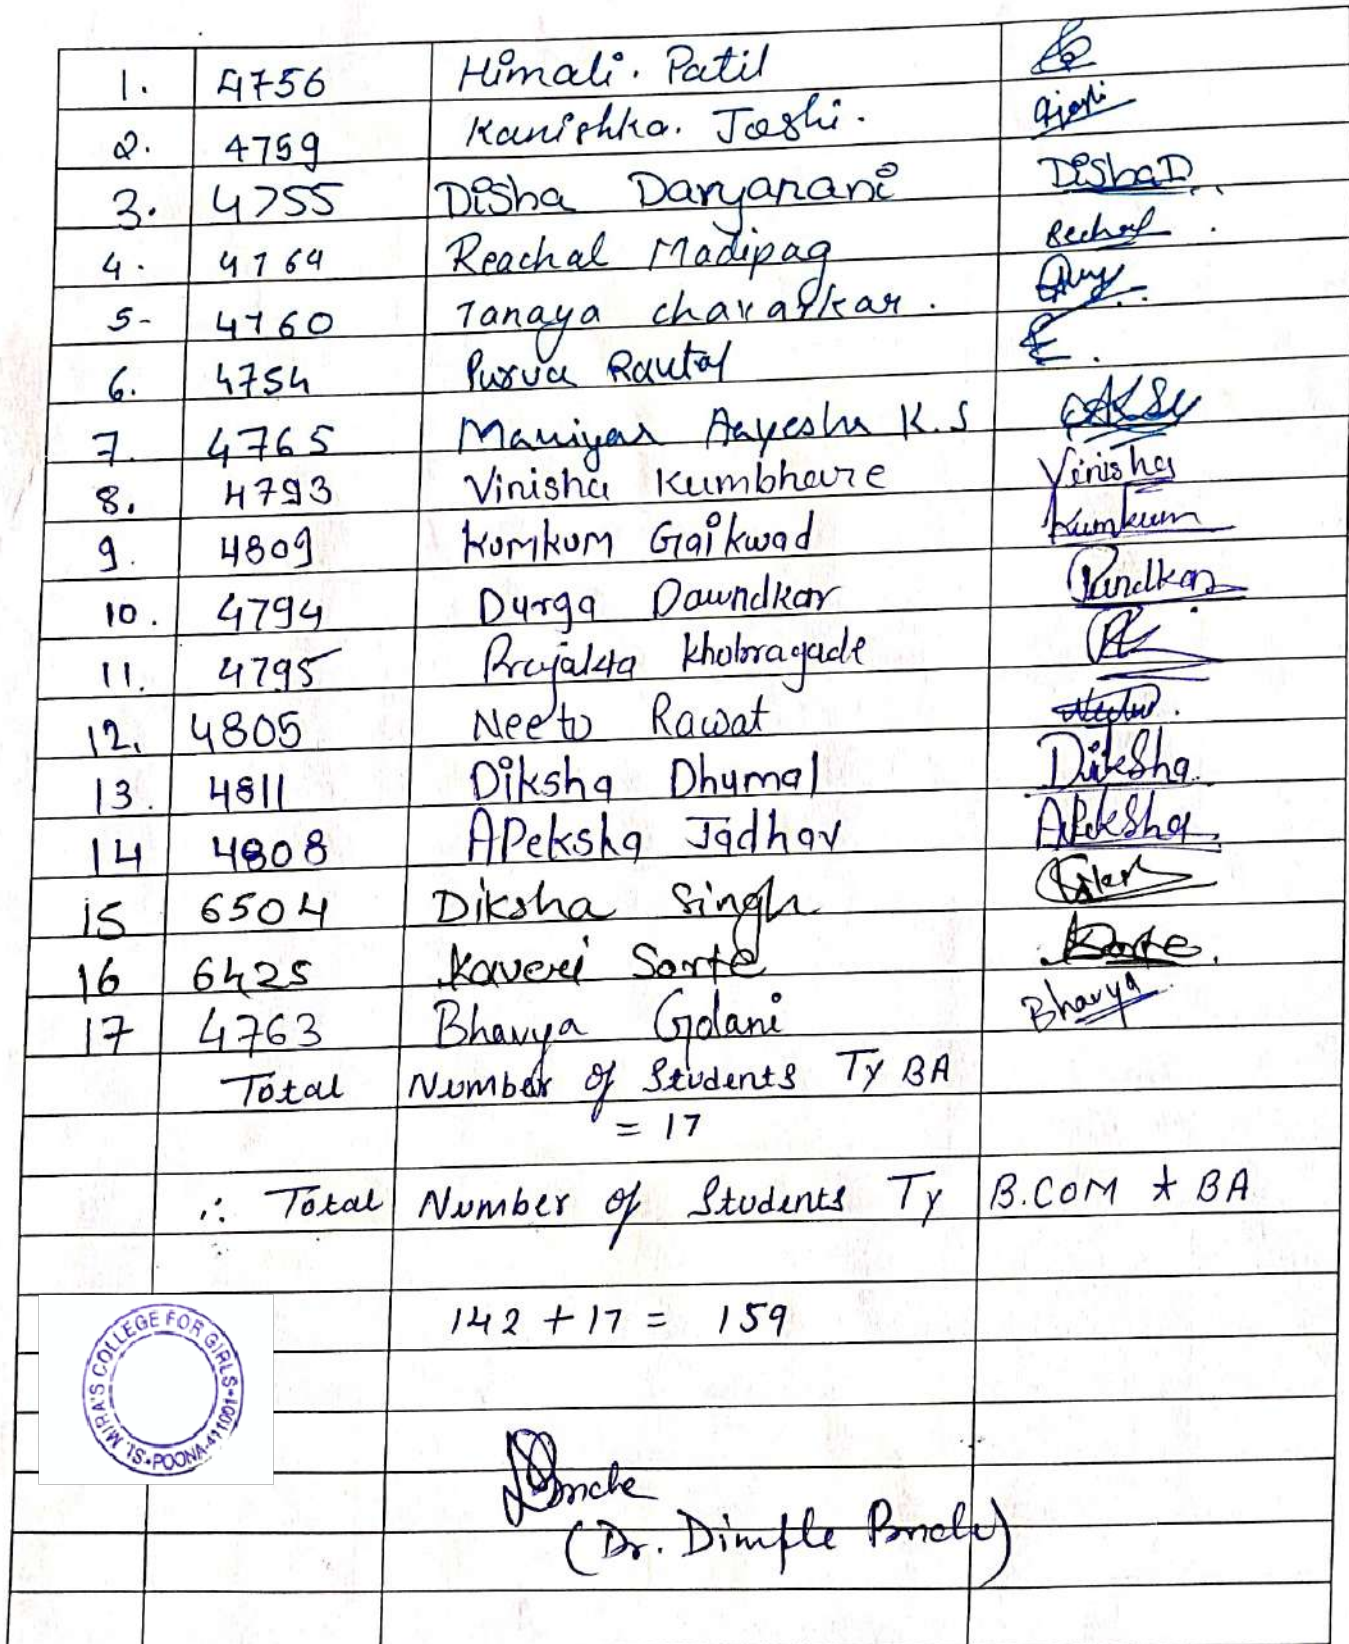 1. 4756 Himali. Patil
2. 4759 Kanishka. Joshi.
3. 4755 Disha Daryanani DishaD
4. 4764 Reachal Madipag Rechal
5- 4760 Tanaya chavarkar.
6. 4754 Purva Rautal
7. 4765 Maniyar Aayesha K.S
8. 4793 Vinisha Kumbhare Vinisha
9. 4809 Kumkum Gaikwad Kumkum
10. 4794 Durga Dawndkar
11. 4795 Prajakta Khobragade
12. 4805 Neetu Rawat
13. 4811 Diksha Dhumal Diksha
14 4808 APeksha Jadhav APeksha
15 6504 Diksha Singh
16 6425 Kaveri Sorte
17 4763 Bhavya Golani Bhavya
Total Number of Students Ty BA
= 17
∴ Total Number of Students Ty B.COM * BA
142 + 17 = 159
ST. MIRA'S COLLEGE FOR GIRLS • POONA-411001
(Dr. Dimple )